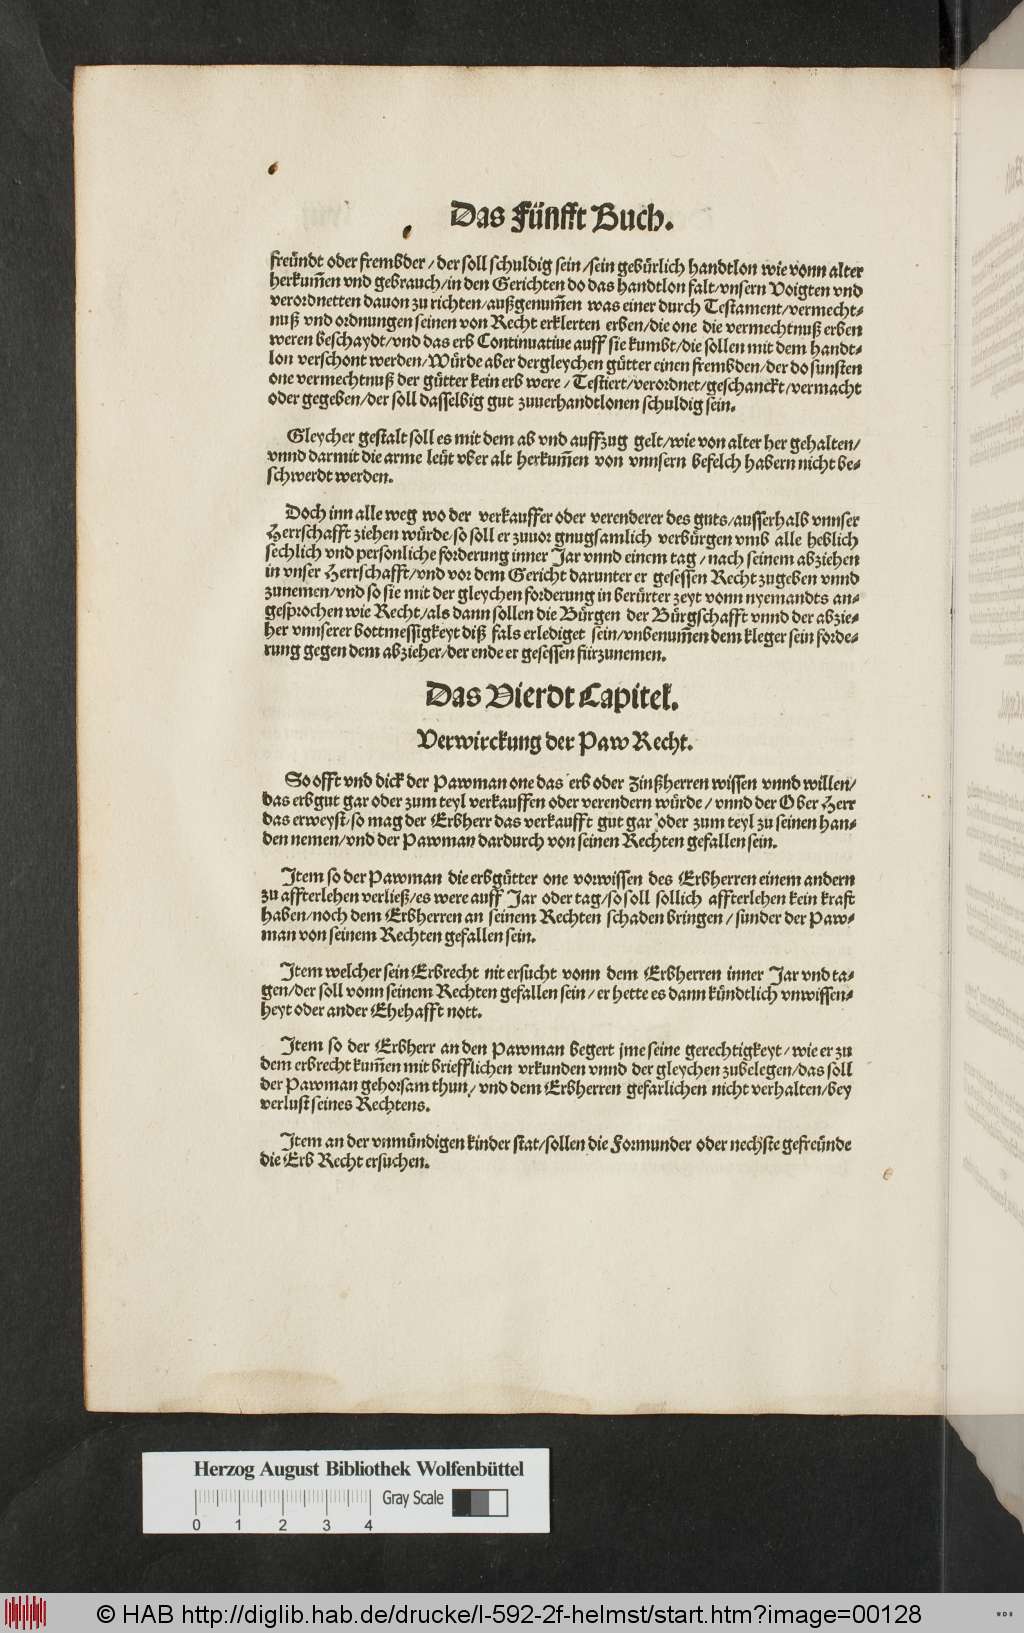 Das Fünfft Buch.
freündt oder frembder / der soll schuldig sein / sein gebürlich handtlon wie vonn alter
herkum̄en vnd gebrauch / in den Gerichten do das handtlon falt / vnsern Voigten vnd
verordnetten dauon zu richten / außgenum̄en was einer durch Testament / vermecht⸗
nuß vnd ordnungen seinen von Recht erklerten erben / die one die vermechtnuß erben
weren beschaydt / vnd das erb Continuatiue auff sie kumbt / die sollen mit dem handt⸗
lon verschont werden / Würde aber dergleychen gütter einen frembden / der do sunsten
one vermechtnuß der gütter kein erb were / Testiert / verordnet / geschanckt / vermacht
oder gegeben / der soll dasselbig gut zuuerhandtlonen schuldig sein.
Gleycher gestalt soll es mit dem ab vnd auffzug gelt / wie von alter her gehalten /
vnnd darmit die arme leüt vber alt herkum̄en von vnnsern befelch habern nicht be⸗
schwerdt werden.
Doch inn alle weg wo der verkauffer oder verenderer des guts / ausserhalb vnnser
Herrschafft ziehen würde / so soll er zuuor gnugsamlich verbürgen vmb alle heblich
sechlich vnd personliche forderung inner Jar vnnd einem tag / nach seinem abziehen
in vnser Herrschafft / vnd vor dem Gericht darunter er gesessen Recht zugeben vnnd
zunemen / vnd so sie mit der gleychen forderung in berürter zeyt vonn nyemandts an⸗
gesprochen wie Recht / als dann sollen die Bürgen der Bürgschafft vnnd der abzie⸗
her vnnserer bottmessigkeyt diß fals erlediget sein / vnbenum̄en dem kleger sein forde⸗
rung gegen dem abzieher / der ende er gesessen fürzunemen.
Das Vierdt Capitel.
Verwirckung der Paw Recht.
So offt vnd dick der Pawman one das erb oder Zinßherren wissen vnnd willen /
das erbgut gar oder zum teyl verkauffen oder verendern würde / vnnd der Ober Herr
das erweyst / so mag der Erbherr das verkaufft gut gar oder zum teyl zu seinen han⸗
den nemen / vnd der Pawman dardurch von seinen Rechten gefallen sein.
Item so der Pawman die erbgütter one vorwissen des Erbherren einem andern
zu affterlehen verließ / es were auff Jar oder tag / so soll sollich affterlehen kein kraft
haben / noch dem Erbherren an seinem Rechten schaden bringen / sunder der Paw⸗
man von seinem Rechten gefallen sein.
Item welcher sein Erbrecht nit ersucht vonn dem Erbherren inner Jar vnd ta⸗
gen / der soll vonn seinem Rechten gefallen sein / er hette es dann kündtlich vnwissen⸗
heyt oder ander Ehehafft nott.
Item so der Erbherr an den Pawman begert jme seine gerechtigkeyt / wie er zu
dem erbrecht kum̄en mit briefflichen vrkunden vnnd der gleychen zubelegen / das soll
der Pawman gehorsam thun / vnd dem Erbherren gefarlichen nicht verhalten / bey
verlust seines Rechtens.
Item an der vnmündigen kinder stat / sollen die Formunder oder nechste gefreünde
die Erb Recht ersuchen.
Herzog August Bibliothek Wolfenbüttel
Gray Scale
0 1 2 3 4
© HAB http://diglib.hab.de/drucke/l-592-2f-helmst/start.htm?image=00128